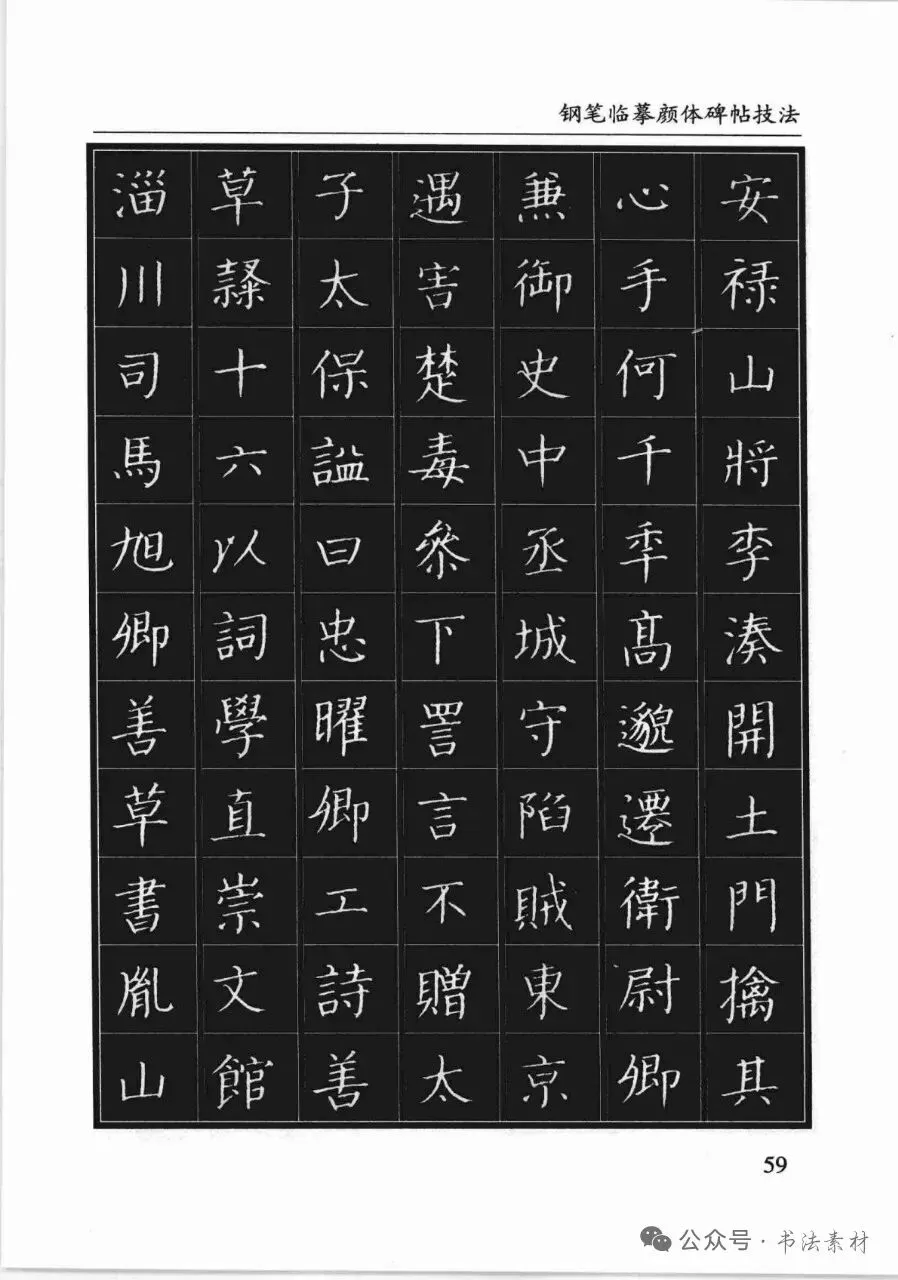 钢笔临摹颜体碑帖技法
安禄山將李湊開土門擒其
心手何千秊髙邈遷衛尉卿
兼御史中丞城守陷賊東京
遇害楚毒参下詈言不贈太
子太保謚曰忠曜卿工詩善
草隸十六以詞學直崇文館
淄川司馬旭卿善草書胤山
59
公众号·书法素材